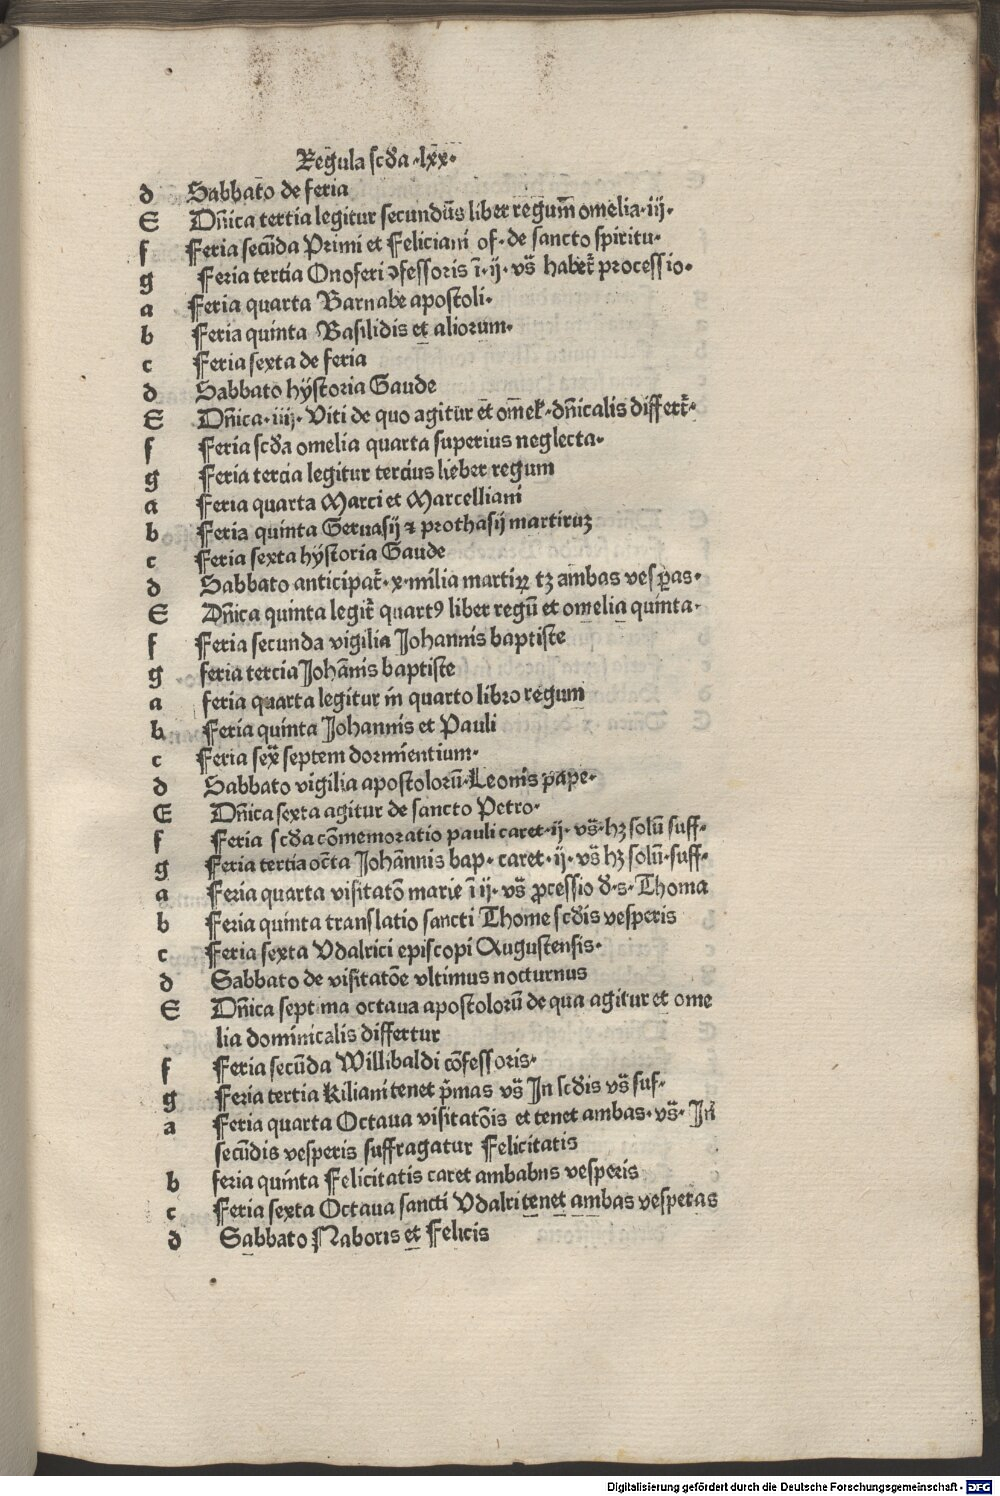 Regula scd̄a ·lxx·
d Sabbato de feria
E Dn̄ica tertia legitur secundūs liber regum̄ omelia·iij·
f Feria secūda Primi et Feliciani of· de sancto spiritu·
g Feria tertia Onoferi ɔfessoris ī·ij· vs̄ haber̄ processio·
a Feria quarta Barnabe apostoli·
b Feria quinta Basilidis et aliorum·
c Feria sexta de feria
d Sabbato hÿstoria Gaude
E Dn̄ica·iiij· Viti de quo agitur et̄ om̄el· dn̄icalis differt̄·
f Feria scd̄a omelia quarta superius neglecta·
g Feria tercia legitur tercius lieber regum
a Feria quarta Marci et Marcelliani
b Feria quinta Geruasij ⁊ prothasij martiruꝫ
c Feria sexta hÿstoria Gaude
d Sabbato anticipat̄·x·milia martiꝝ tꝫ ambas vesꝑas·
E Dn̄ica quinta legit̄ quartꝰ liber regū et omelia quinta·
f Feria secunda vigilia Johannis baptiste
g feria tercia Johān̄is baptiste
a feria quarta legitur in quarto libro regum
b Feria quinta Johannis et Pauli
c Feria sex̄ septem dormientium·
d Sabbato vigilia apostolorū·Leonis pape·
E Dn̄ica sexta agitur de sancto Petro·
f Feria scd̄a cōmemoratio pauli caret·ij·vs̄·hꝫ solū suff·
g Feria tertia oct̄a Johān̄nis bap· caret·ij·vs̄ hꝫ solū·suff·
a Feria quarta visitatō marie ī ij· vs̄ ꝓcessio d̄·s· Thoma
b Feria quinta translatio sancti Thome scd̄is vesperis
c Feria sexta Vdalrici episcopi Augustensis·
d Sabbato de visitatōe vltimus nocturnus
E Dn̄ica sept ma octaua apostolorū de qua agitur et ome
lia dominicalis differtur
f Feria secūda Willibaldi cōfessoris·
g Feria tertia Kiliani tenet p̄mas vs̄ Jn scd̄is vs̄ suf·
a Feria quarta Octaua visitatōis et tenet ambas·vs̄· Jn̄
secūdis vesperis suffragatur Felicitatis
b feria quinta Felicitatis caret ambabns vesperis
c Feria sexta Octaua sancti Vdalri tenet ambas vesperas
d Sabbato Naboris et Felicis
Digitalisierung gefördert durch die Deutsche Forschungsgemeinschaft - DFG